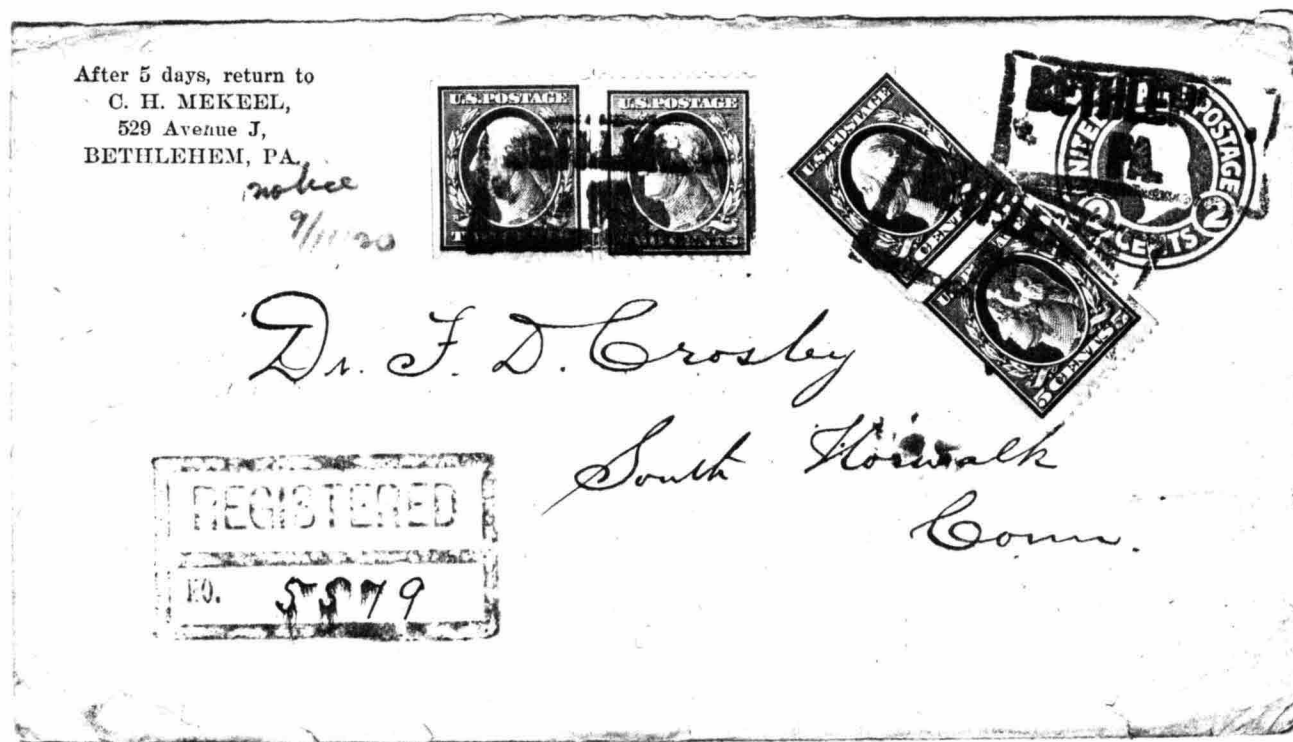 After 5 days, return to
C. H. MEKEEL,
529 Avenue J,
BETHLEHEM, PA.
notice
9/11 20
U.S.POSTAGE
U.S.POSTAGE
CENTS
U.S.POSTAGE
CENTS
CENTS
BETHLEHEM
PA.
UNITED POSTAGE
2 CENTS 2
Dr. F. D. Crosby
South Norwalk
Conn.
REGISTERED
NO. 5579